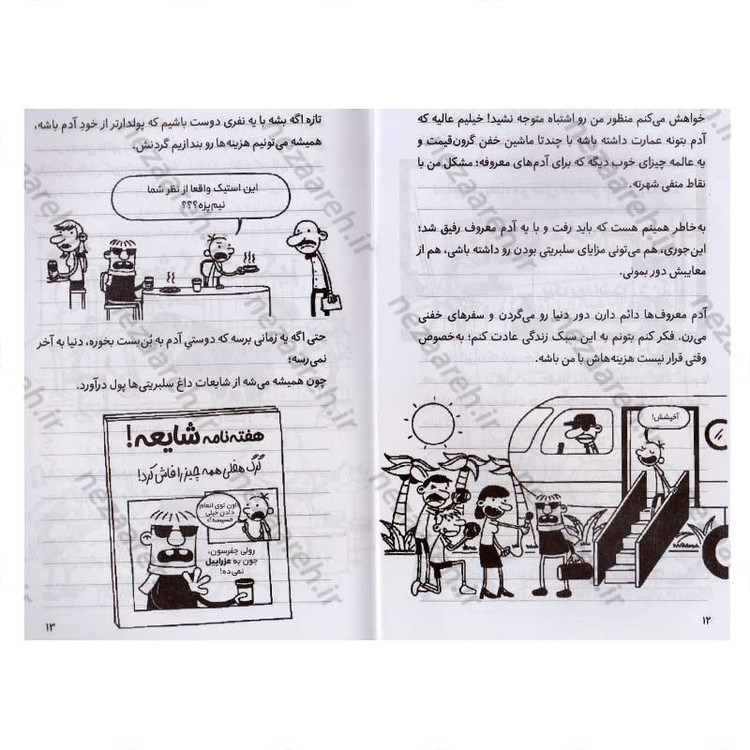 خواهش می‌کنم منظور من رو اشتباه متوجه نشید! خیلیم عالیه که
آدم بتونه عمارت داشته باشه با چندتا ماشین خفن گرون‌قیمت و
یه عالمه چیزای خوب دیگه که برای آدم‌های معروفه؛ مشکل من با
نقاط منفی شهرته.
به‌خاطر همینم هست که باید رفت و با یه آدم معروف رفیق شد؛
این‌جوری، هم می‌تونی مزایای سلبریتی بودن رو داشته باشی، هم از
معایبش دور بمونی.
آدم معروف‌ها دائم دارن دور دنیا رو می‌گردن و سفرهای خفنی
می‌رن. فکر کنم بتونم به این سبک زندگی عادت کنم؛ به‌خصوص
وقتی قرار نیست هزینه‌هاش با من باشه.
آخیشش!
۱۲
تازه اگه بشه با یه نفری دوست باشیم که پولدارتر از خود آدم باشه،
همیشه می‌تونیم هزینه‌ها رو بندازیم گردنش.
این استیک واقعا از نظر شما
نیم‌پزه؟؟؟
حتی اگه یه زمانی برسه که دوستیِ آدم به بُن‌بست بخوره، دنیا به آخر
نمی‌رسه؛
چون همیشه می‌شه از شایعات داغ سلبریتی‌ها پول درآورد.
هفته‌نامه شایعه!
گرگ هفلی همه چیز را فاش کرد!
اون توی انعام
دادن خیلی
خسیسه!
رولی جفرسون،
جون به عزراییل
نمی‌ده!
۱۳
nezaareh.ir